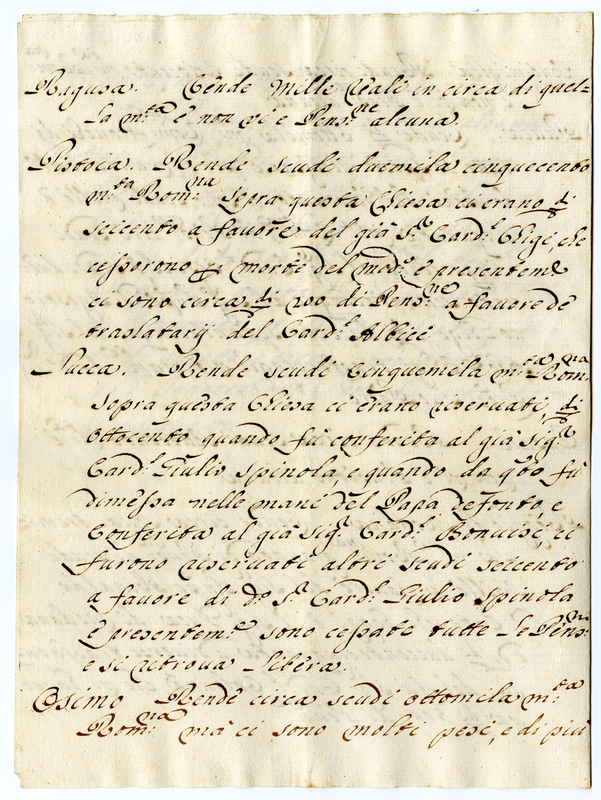 Ragusa. Rende mille reali in circa di quel=
la m.ta e non vi e Pens.ne alcuna.
Pistoia. Rende scudi duemila cinquecento
m.ta Rom.na sopra questa Chiesa ci erano
seicento a favore del già S.r Card.l Chigi, che
cessorono morte del med.o e presentem.e
ci sono circa 200 di Pens.ne a favore de
traslatarij del Card.l Albici
Lucca. Rende scudi Cinquemila m.ta Rom.na
sopra questa Chiesa ci erano riservati,
Ottocento quando fù conferita al già Sig.r
Card.l Giulio Spinola, e quando da q̃to fù
dimessa nelle mani del Papa defonto, e
Conferita al già Sig.r Card.l Bonvisi, ci
furono riservati altri scudi seicento
a favore di d.o S.r Card.l Giulio Spinola
e presentem.e sono cessate tutte le Pens.ni
e si ritrova libera.
Osimo Rende circa scudi ottomila m.ta
Rom.na mà ci sono molti pesi, e di più